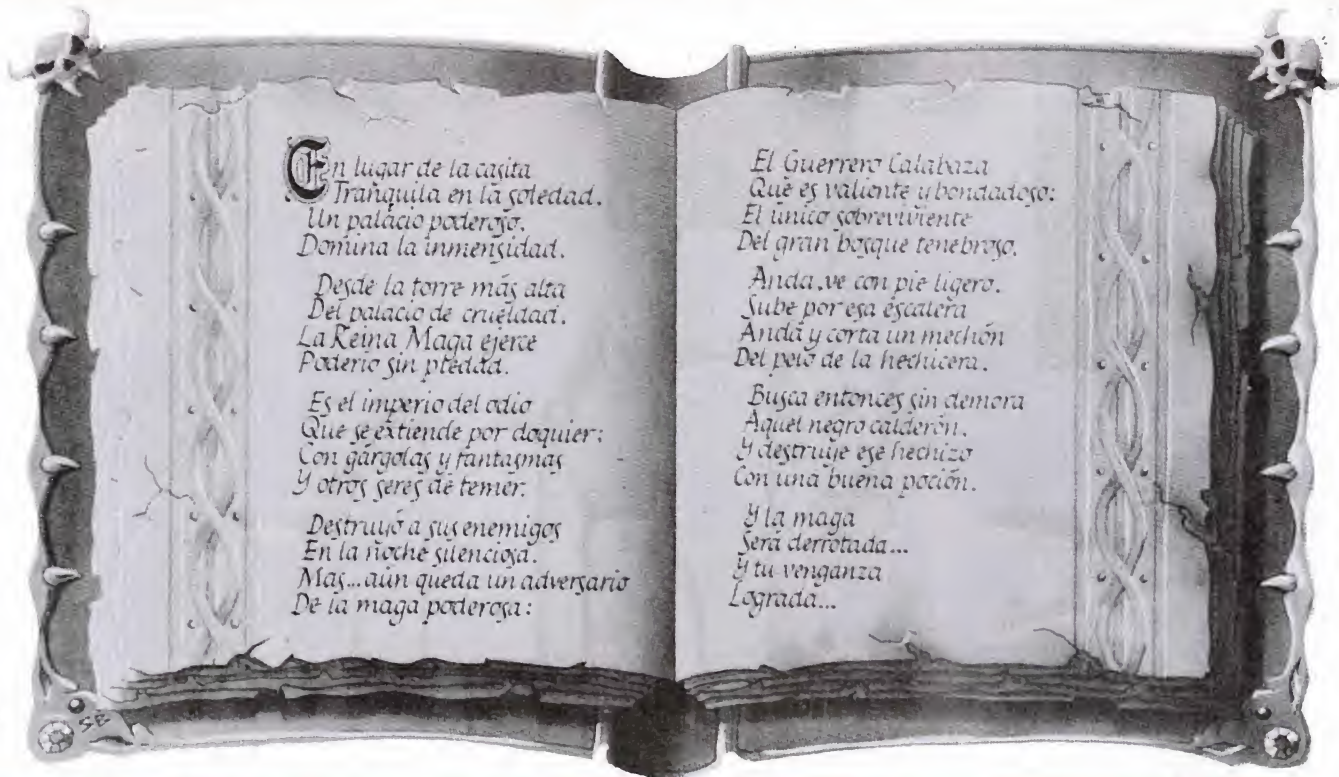 En lugar de la casita
Tranquila en la soledad.
Un palacio poderoso.
Domina la inmensidad.
Desde la torre más alta
Del palacio de crueldad.
La Reina Maga ejerce
Poderio sin piedad.
Es el imperio del odio
Que se extiende por doquier:
Con gárgolas y fantasmas
Y otros seres de temer.
Destruyó a sus enemigos
En la noche silenciosa.
Mas...aún queda un adversario
De la maga poderosa:
El Guerrero Calabaza
Que es valiente y bondadoso:
El unico sobreviviente
Del gran bosque tenebroso.
Anda, ve con pie ligero.
Sube por esa escalera
Anda y corta un mechón
Del pelo de la hechicera.
Busca entonces sin demora
Aquel negro calderón.
Y destruye ese hechizo
Con una buena poción.
Y la maga
Será derrotada...
Y tu venganza
Lograda...
SB